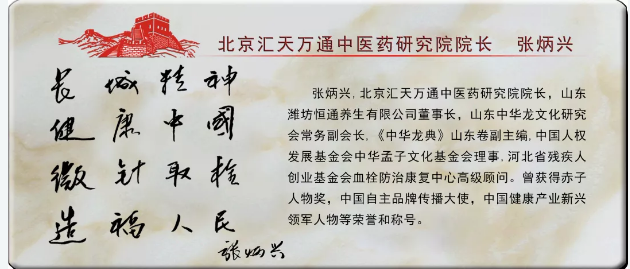 北京汇天万通中医药研究院院长 张炳兴
长城精神
健康中國
微针取栓
造福人民
张炳兴
张炳兴,北京汇天万通中医药研究院院长，山东
潍坊恒通养生有限公司董事长，山东中华龙文化研究
会常务副会长,《中华龙典》山东卷副主编,中国人权
发展基金会中华孟子文化基金会理事,河北省残疾人
创业基金会血栓防治康复中心高级顾问。曾获得赤子
人物奖，中国自主品牌传播大使，中国健康产业新兴
领军人物等荣誉和称号。